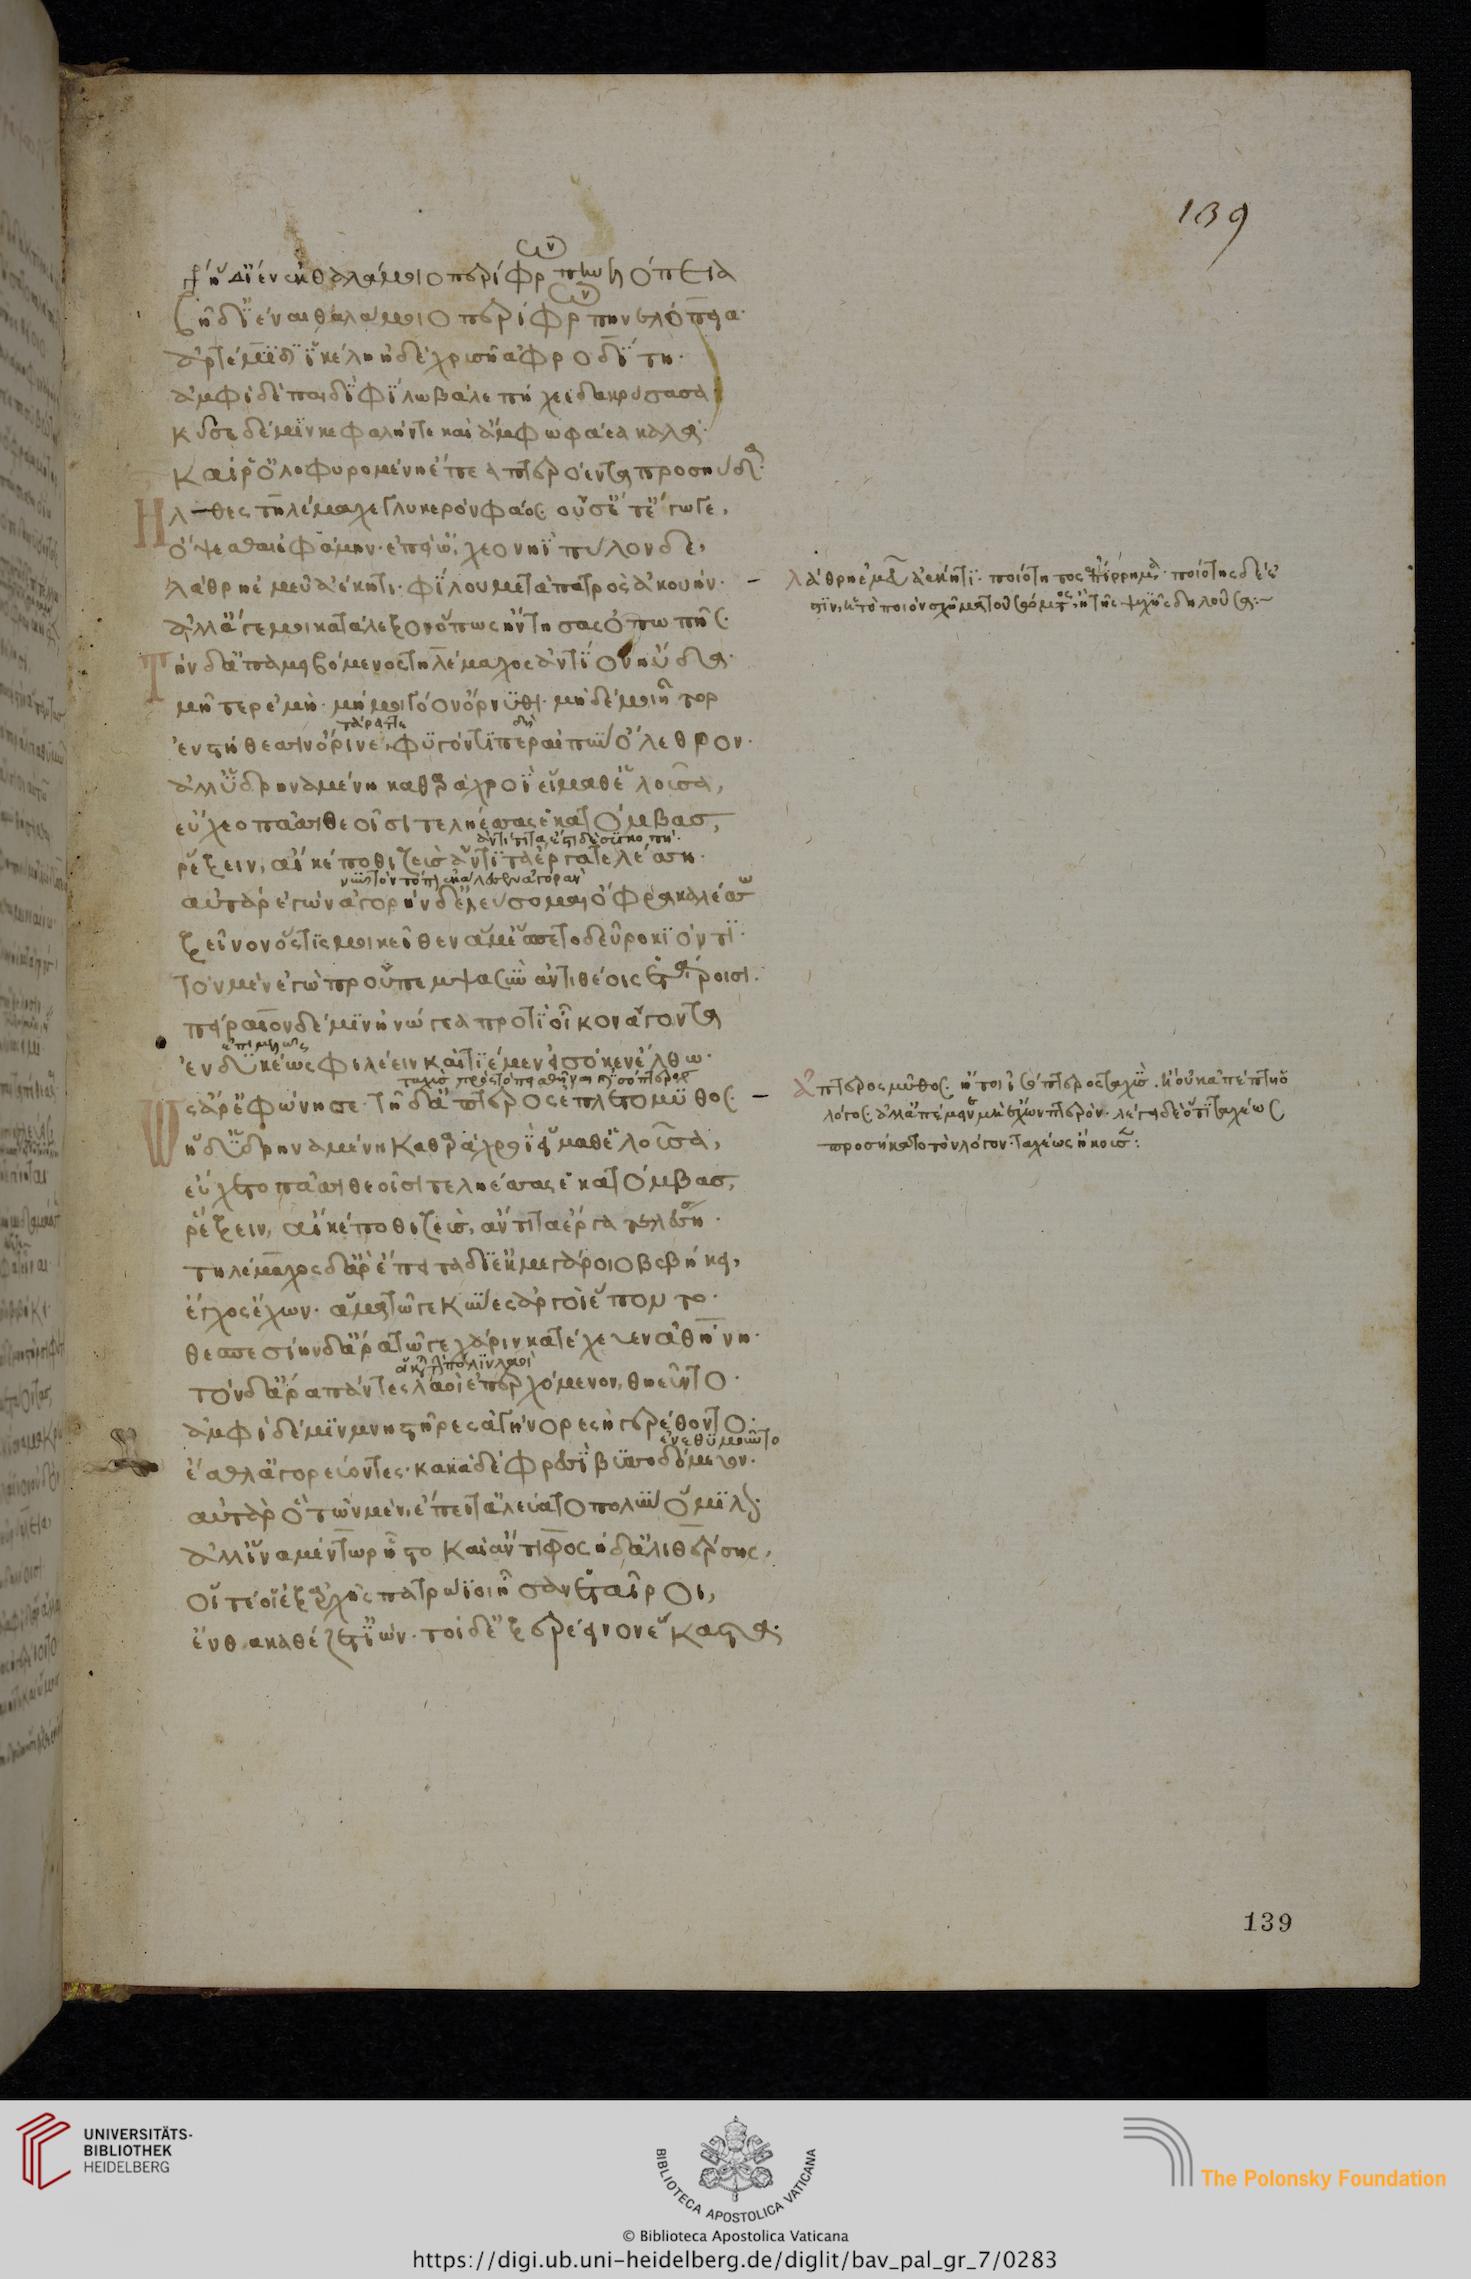 139
ἡ δ' ἴεν ἐκ θαλάμοιο περίφρων πηνελόπεια
ἡ δ' ἴεν ἐκ θαλάμοιο περίφρων πηνελόπεια·
ἀρτέμιδι ἰκέλη ἠδὲ χρυσῆ ἀφροδίτη·
ἀμφὶ δὲ παιδὶ φίλω βάλε πήχεε δακρύσασα
κύσε δέ μιν κεφαλήν τε καὶ ἄμφω φάεα καλά·
καί ῥ' ὀλοφυρομένη ἔπεα πτερόεντα προσηύδα·
Ἦλθες τηλέμαχε γλυκερὸν φάος· οὔ σ' ἔτ' ἔγωγε,
ὄψεσθαι ἐφάμην· ἐπεὶ ὤχεο νηῒ πύλονδε,
λάθρη ἐμεῦ ἀέκητι· φίλου μετὰ πατρὸς ἀκουήν· –
λάθρη ἐμεῦ ἀέκητι· ποιότητος ἐπίρρημα· ποιότης δέ ἐ
στιν, ἡ τὸ ποιὸν σχῆμα τοῦ σώματος, ἢ τῆς ψυχῆς δηλοῦσα:–
ἀλλ' ἄγε μοι κατάλεξον ὅπως ἤντησας ὀπωπῆς·
Τὴν δ' αὖ παμειβόμενος τηλέμαχος ἀντίον ηὔδα·
μῆτερ ἐμή· μή μοι γόον ὄρνυθι· μὴ δέ μοι ἦτορ
τάραττε
ἐν στήθεσσιν ὄρινε, φυγόντι περ αἰπὺν ὄλεθρον·
ἀλλ' ὑδρηναμένη καθαρὰ χροῒ εἵμαθ' ἑλοῦσα,
εὔχεο πᾶσι θεοῖσι τεληέσσας ἑκατόμβας,
ῥέξειν, αἴ κέ ποθι ζεὺς ἄντιτα ἔργα τελέσση·
αὐτὰρ ἐγὼν ἀγορὴν δ' ἐλεύσομαι ὄφρα καλέσσω
ξεῖνον ὅτις μοι κεῖθεν ἅμ' ἕσπετο δεῦρο κιόντι·
τὸν μὲν ἐγὼ προὔπεμψα σὺν ἀντιθέοις ἑτάροισι·
πείραιον δέ μιν ἠνώγεα προτὶ οἶκον ἄγοντα
ἐπιμελῶς
ἐνδυκέως φιλέειν καὶ τιέμεν εἰσόκεν ἔλθω·
Ὣς ἄρ' ἐφώνησε· τῆ δ' ἄπτερος ἔπλετο μῦθος· –
ἄπτερος μῦθος· ἤτοι ἰσόπτερος ταχύς· ἢ οὐκ ἀπέπτη ὁ
λόγος· ἀλλ' ἐπέμεινε μὴ ἔχων πτερόν· λέγει δὲ ὅτι ταχέως
προσήκατο τὸν λόγον· ταχέως ἤκουσε:
ἡ δ' ὑδρηναμένη καθαρὰ χροῒ εἵμαθ' ἑλοῦσα,
εὔχετο πᾶσι θεοῖσι τεληέσσας ἑκατόμβας,
ῥέξειν, αἴ κέ ποθι ζεὺς, ἄντιτα ἔργα τελέσση·
τηλέμαχος δ' ἄρ' ἔπειτα διὲκ μεγάροιο βεβήκει,
ἔγχος ἔχων· ἅμα τῶγε κύνες ἀργοὶ ἕποντο·
θεσπεσίην δ' ἄρα τῶγε χάριν κατέχευεν ἀθήνη·
τὸν δ' ἄρα πάντες λαοὶ ἐπερχόμενον, θηεῦντο·
ἀμφὶ δέ μιν μνηστῆρες ἀγήνορες ἠγερέθοντο·
ἔσθλ' ἀγορεύοντες· κακὰ δὲ φρεσὶ βυσσοδόμευον·
αὐτὰρ ὁ τῶν μὲν, ἔπειτ' ἀλεύατο πολὺν ὅμιλον·
ἀλλ' ἵνα μέντωρ ἧστο καὶ ἄντιφος ἠδ' ἁλιθέρσης,
οἵ τέ οἱ ἐξ ἀρχῆς πατρώϊοι ἦσαν ἑταῖροι,
ἔνθα καθέζετ' ἰών· τοὶ δ' ἐξερέεινον ἕκαστα·
139
UNIVERSITÄTS-
BIBLIOTHEK
HEIDELBERG
BIBLIOTECA APOSTOLICA VATICANA
The Polonsky Foundation
© Biblioteca Apostolica Vaticana
https://digi.ub.uni-heidelberg.de/diglit/bav_pal_gr_7/0283